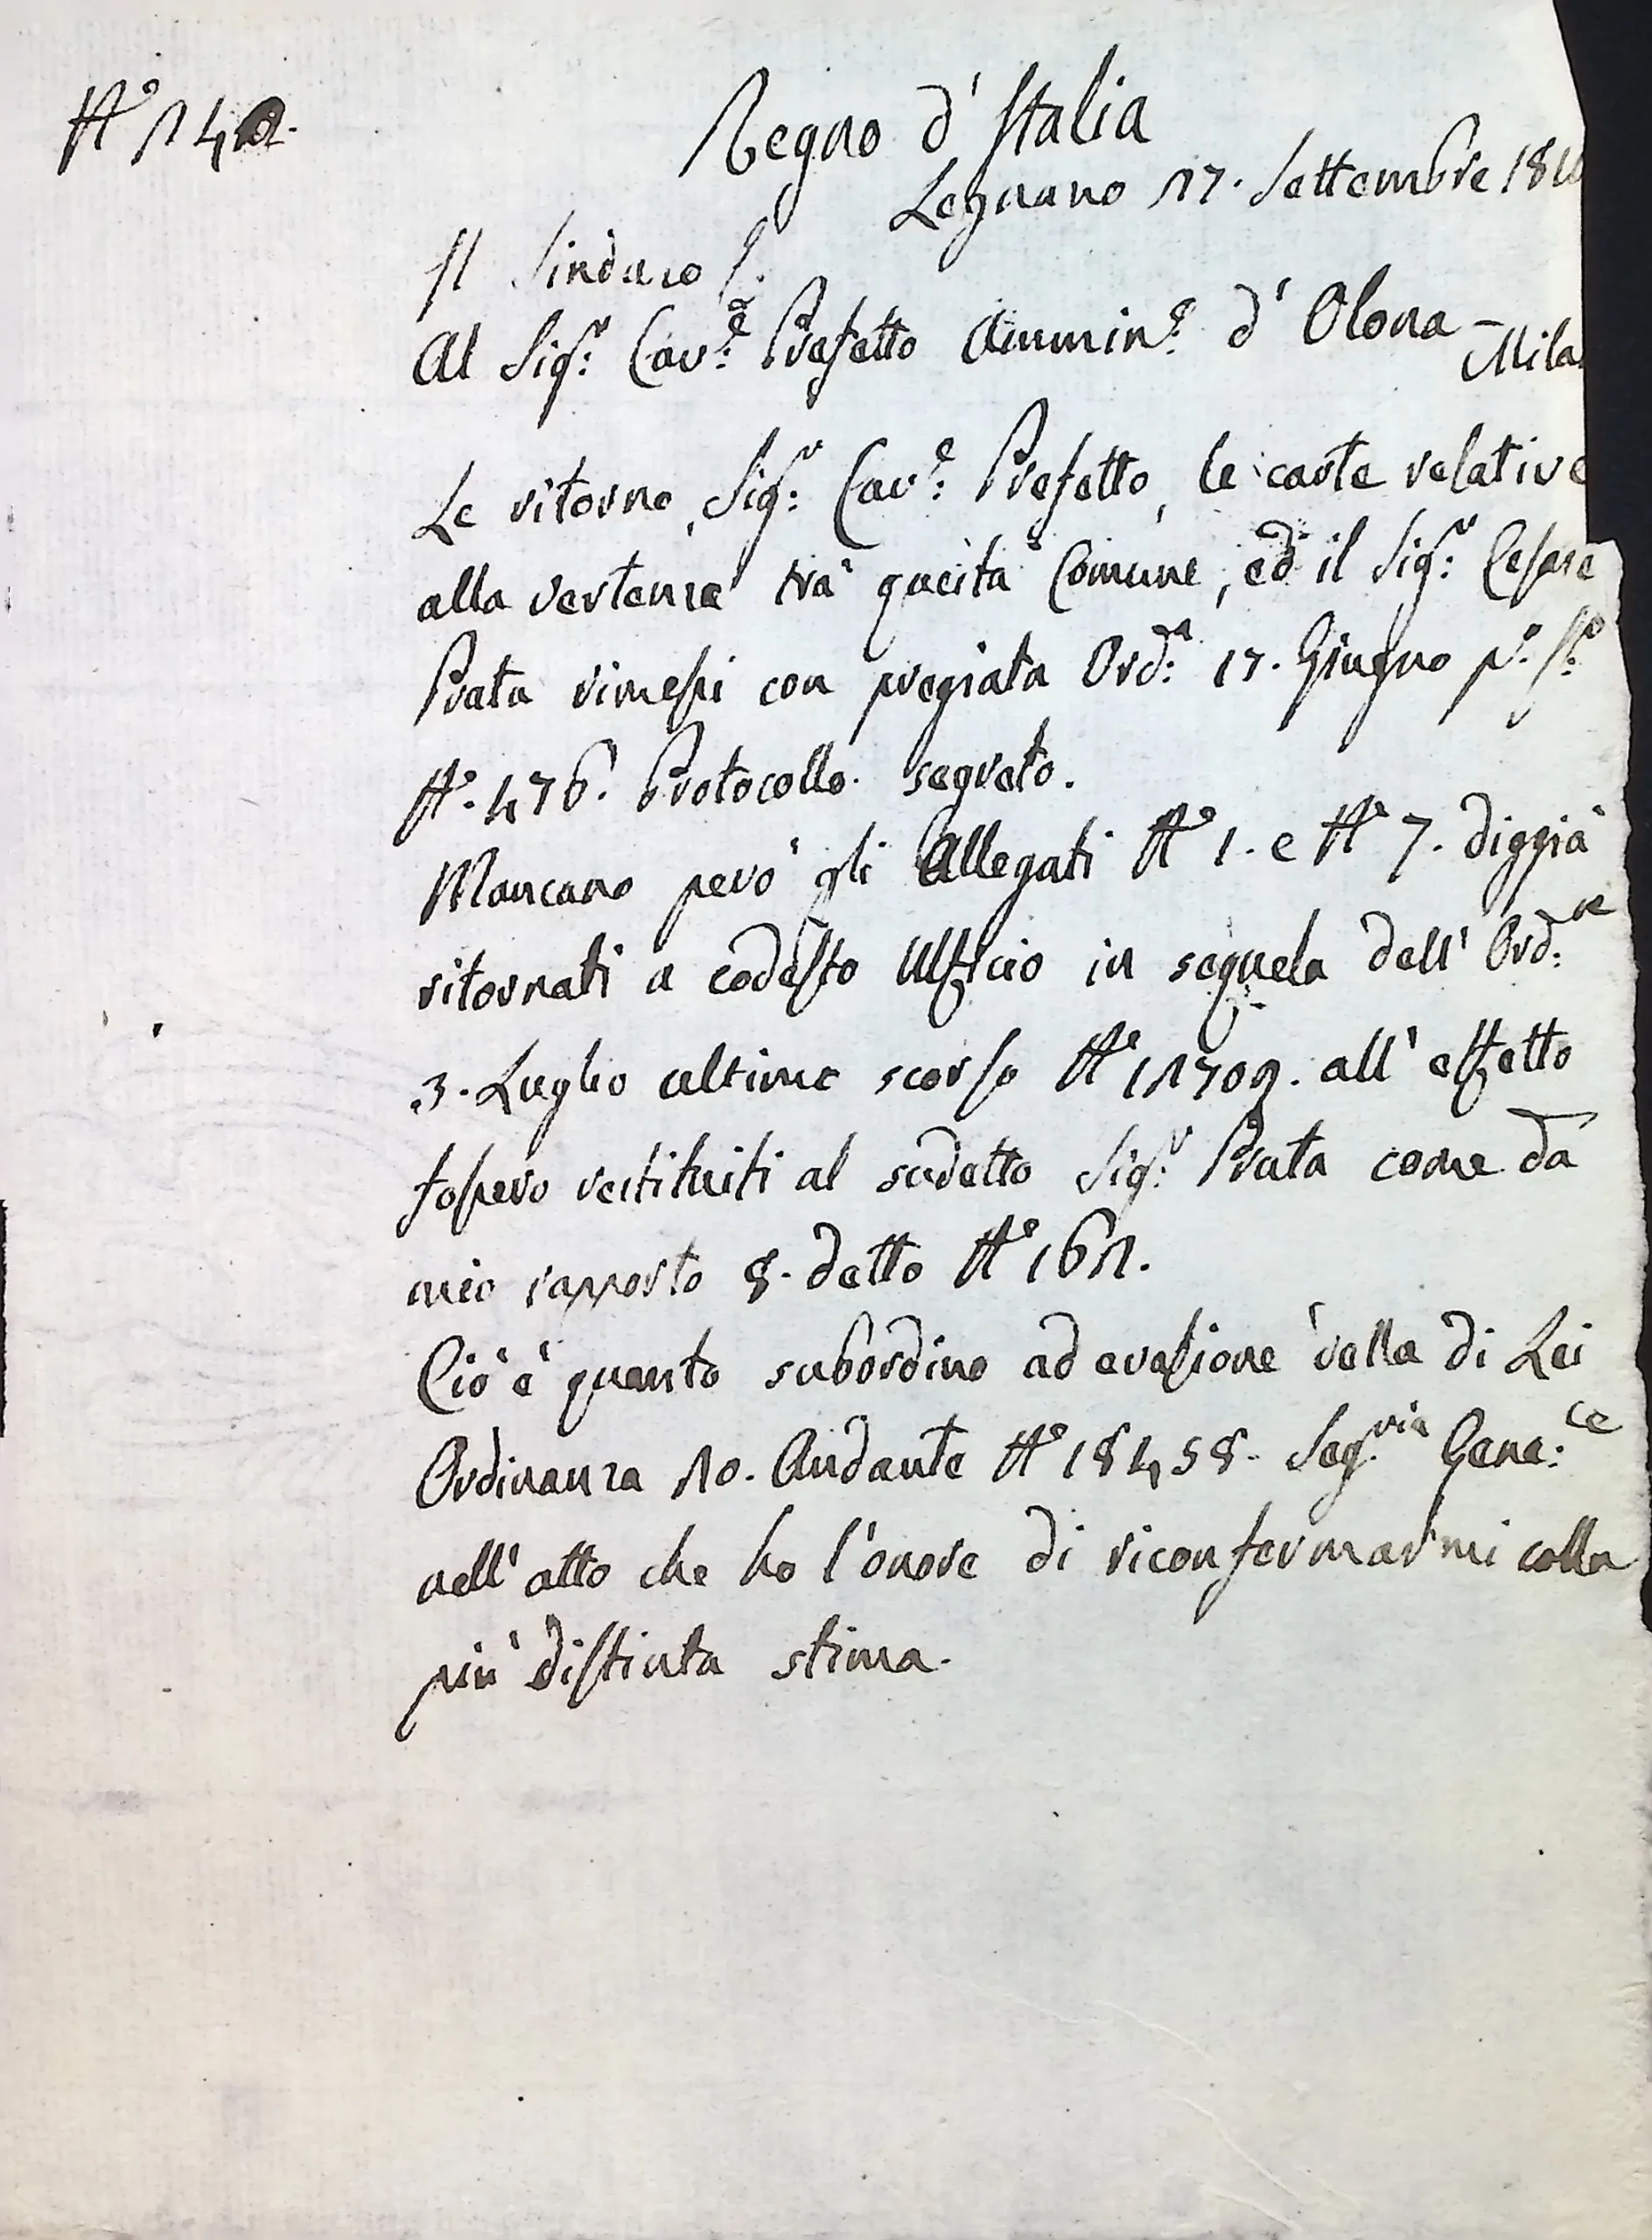 N° 14
Regno d'Italia
Legnano 17. Settembre 181
Il Sindaco
Al Sig.r Cav.e Prefetto Ammin.e d'Olona -
Mila
Le ritorno, Sig.r Cav.e Prefetto, le carte relative
alla vertenza trà questa Comune, ed il Sig.r Cesare
Prata rimessi con pregiata Ord.a 17. Giugno p.o s.o
N°. 476. Protocollo segreto.
Mancano però gli Allegati N° 1. e N° 7. diggià
ritornati a codesto Ufficio in sequela dell' Ord.
3. Luglio ultimo scorso N° 11709. all' effetto
fossero restituiti al sudetto Sig.r Prata come da
mio rapporto 8. detto N° 161.
Ciò è quanto subordino ad evasione della di Lei
Ordinanza 10. Andante N° 18458. Seg.ria Gene.le
nell' atto che ho l'onore di riconfermarmi colla
più distinta stima.